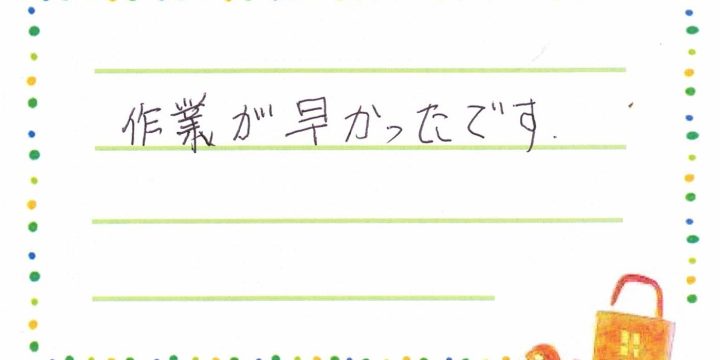 作業が早かったです.